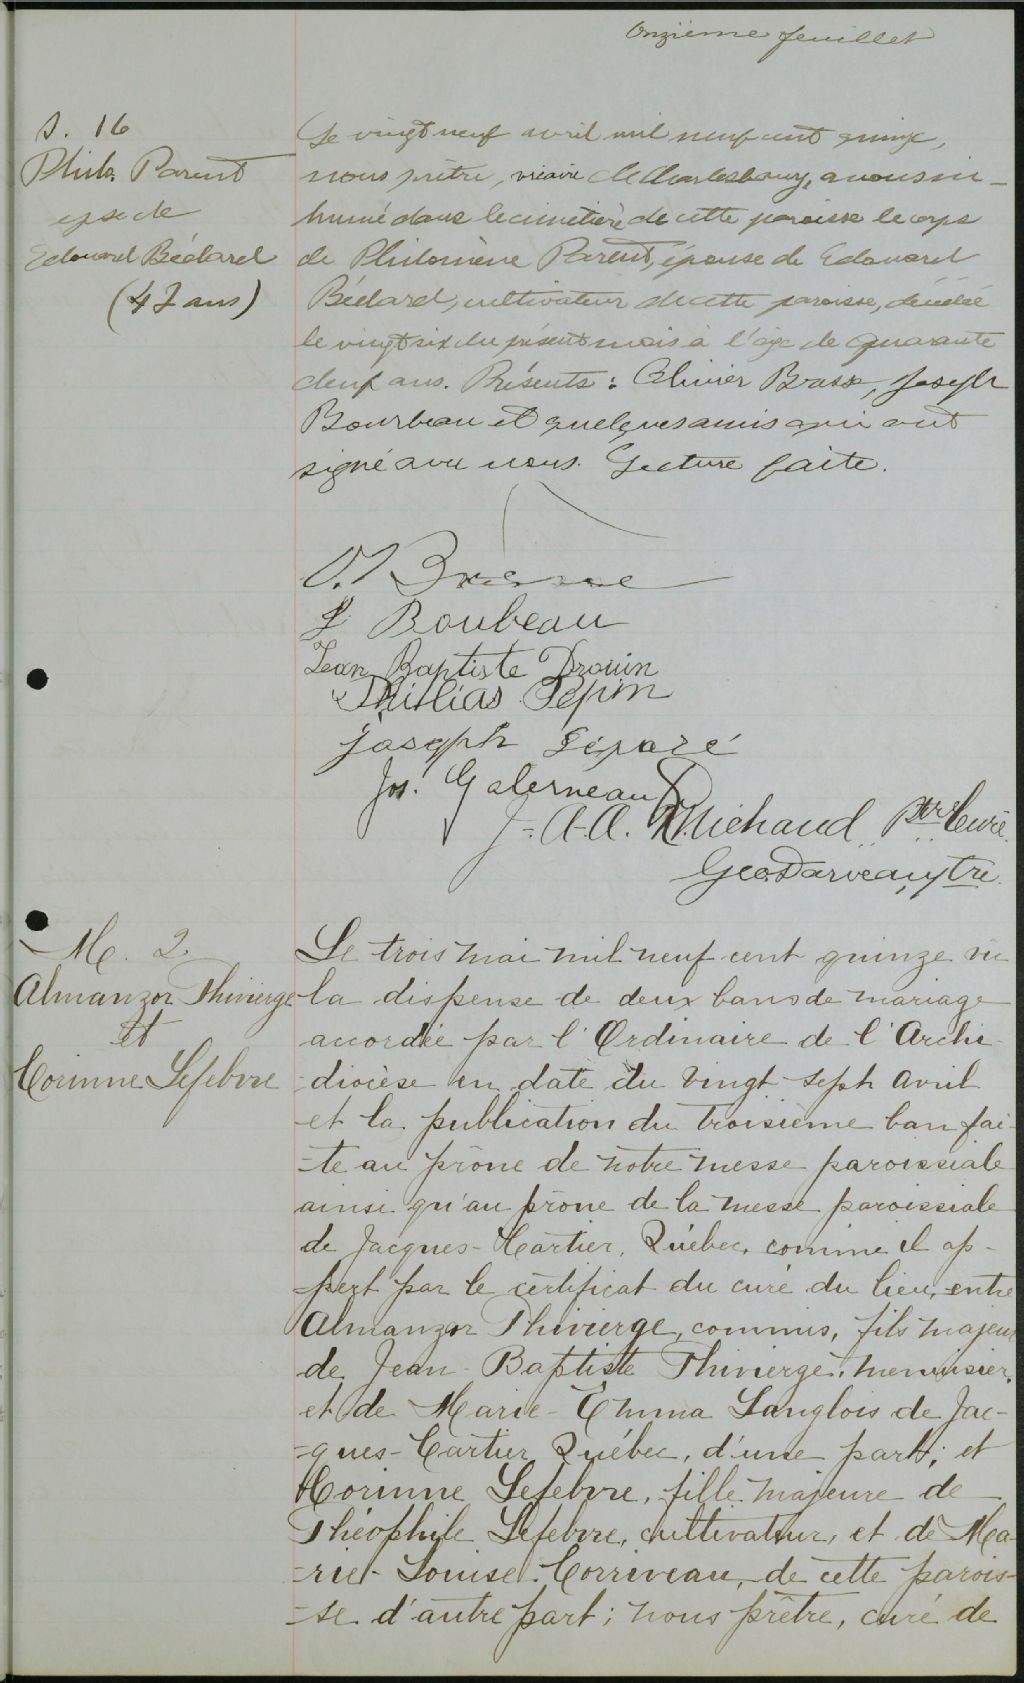 Onzième feuillet
S. 16
Philo. Parent
epse de
Edouard Bédard
(42 ans)
Le vingt neuf avril mil neuf cent quinze,
nous prêtre, vicaire de Charlesbourg, avons in-
humé dans le cimetière de cette paroisse le corps
de Philomène Parent, épouse de Edouard
Bédard, cultivateur de cette paroisse, décédée
le vingt six du présent mois à l'âge de quarante
deux ans. Présents : Olivier Brasse, Joseph
Bourbeau et quelques amis qui ont
signé avec nous. Lecture faite.
O.
J Boubeau
Jean Baptiste Drouin
Philias Pépin
Joseph Séparé
Jos. Galerneau
J-A.-A. Michaud ptre Curé.
Geo. Darveau, ptre.
M. 2
Almanzor Thivierge
et
Corinne Lefebvre
Le trois mai mil neuf cent quinze vu
la dispense de deux bans de mariage
accordée par l'Ordinaire de l'Archi-
diocèse en date du vingt-sept avril
et la publication du troisième ban fai-
-te au prône de notre messe paroissiale
ainsi qu'au prône de la messe paroissiale
de Jacques-Cartier, Québec, comme il ap-
-pert par le certificat du curé du lieu, entre
Almanzor Thivierge, commis, fils majeur
de Jean-Baptiste Thivierge, menuisier,
et de Marie-Emma Langlois de Jac-
-ques-Cartier Québec, d'une part; et
Corinne Lefebvre, fille majeure de
Théophile Lefebvre, cultivateur, et de Ma-
-rie-Louise Corriveau, de cette parois-
-se d'autre part; nous prêtre, curé de